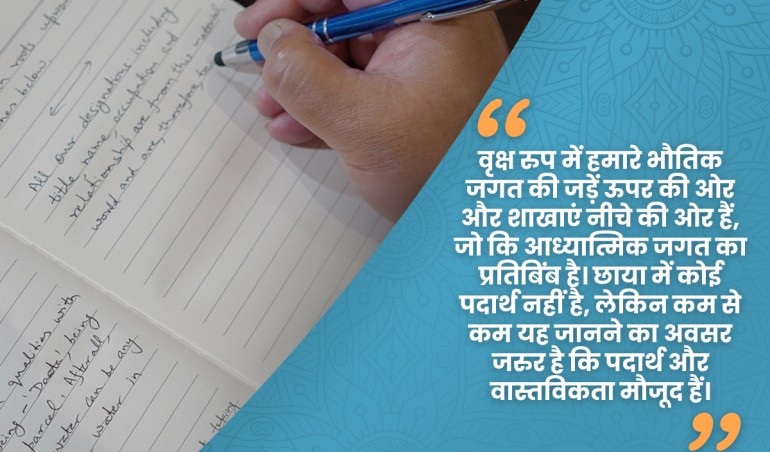 roots upwar
nes below.
All our designations including
title, name, occupation and
relationship are from this material
world and are, therefore, te
qualities with
eing - 'Daata', being
parcel. Afterall,
water can be any
water in
taking
“
वृक्ष रुप में हमारे भौतिक
जगत की जड़ें ऊपर की ओर
और शाखाएं नीचे की ओर हैं,
जो कि आध्यात्मिक जगत का
प्रतिबिंब है। छाया में कोई
पदार्थ नहीं है, लेकिन कम से
कम यह जानने का अवसर
जरुर है कि पदार्थ और
वास्तविकता मौजूद हैं।
”